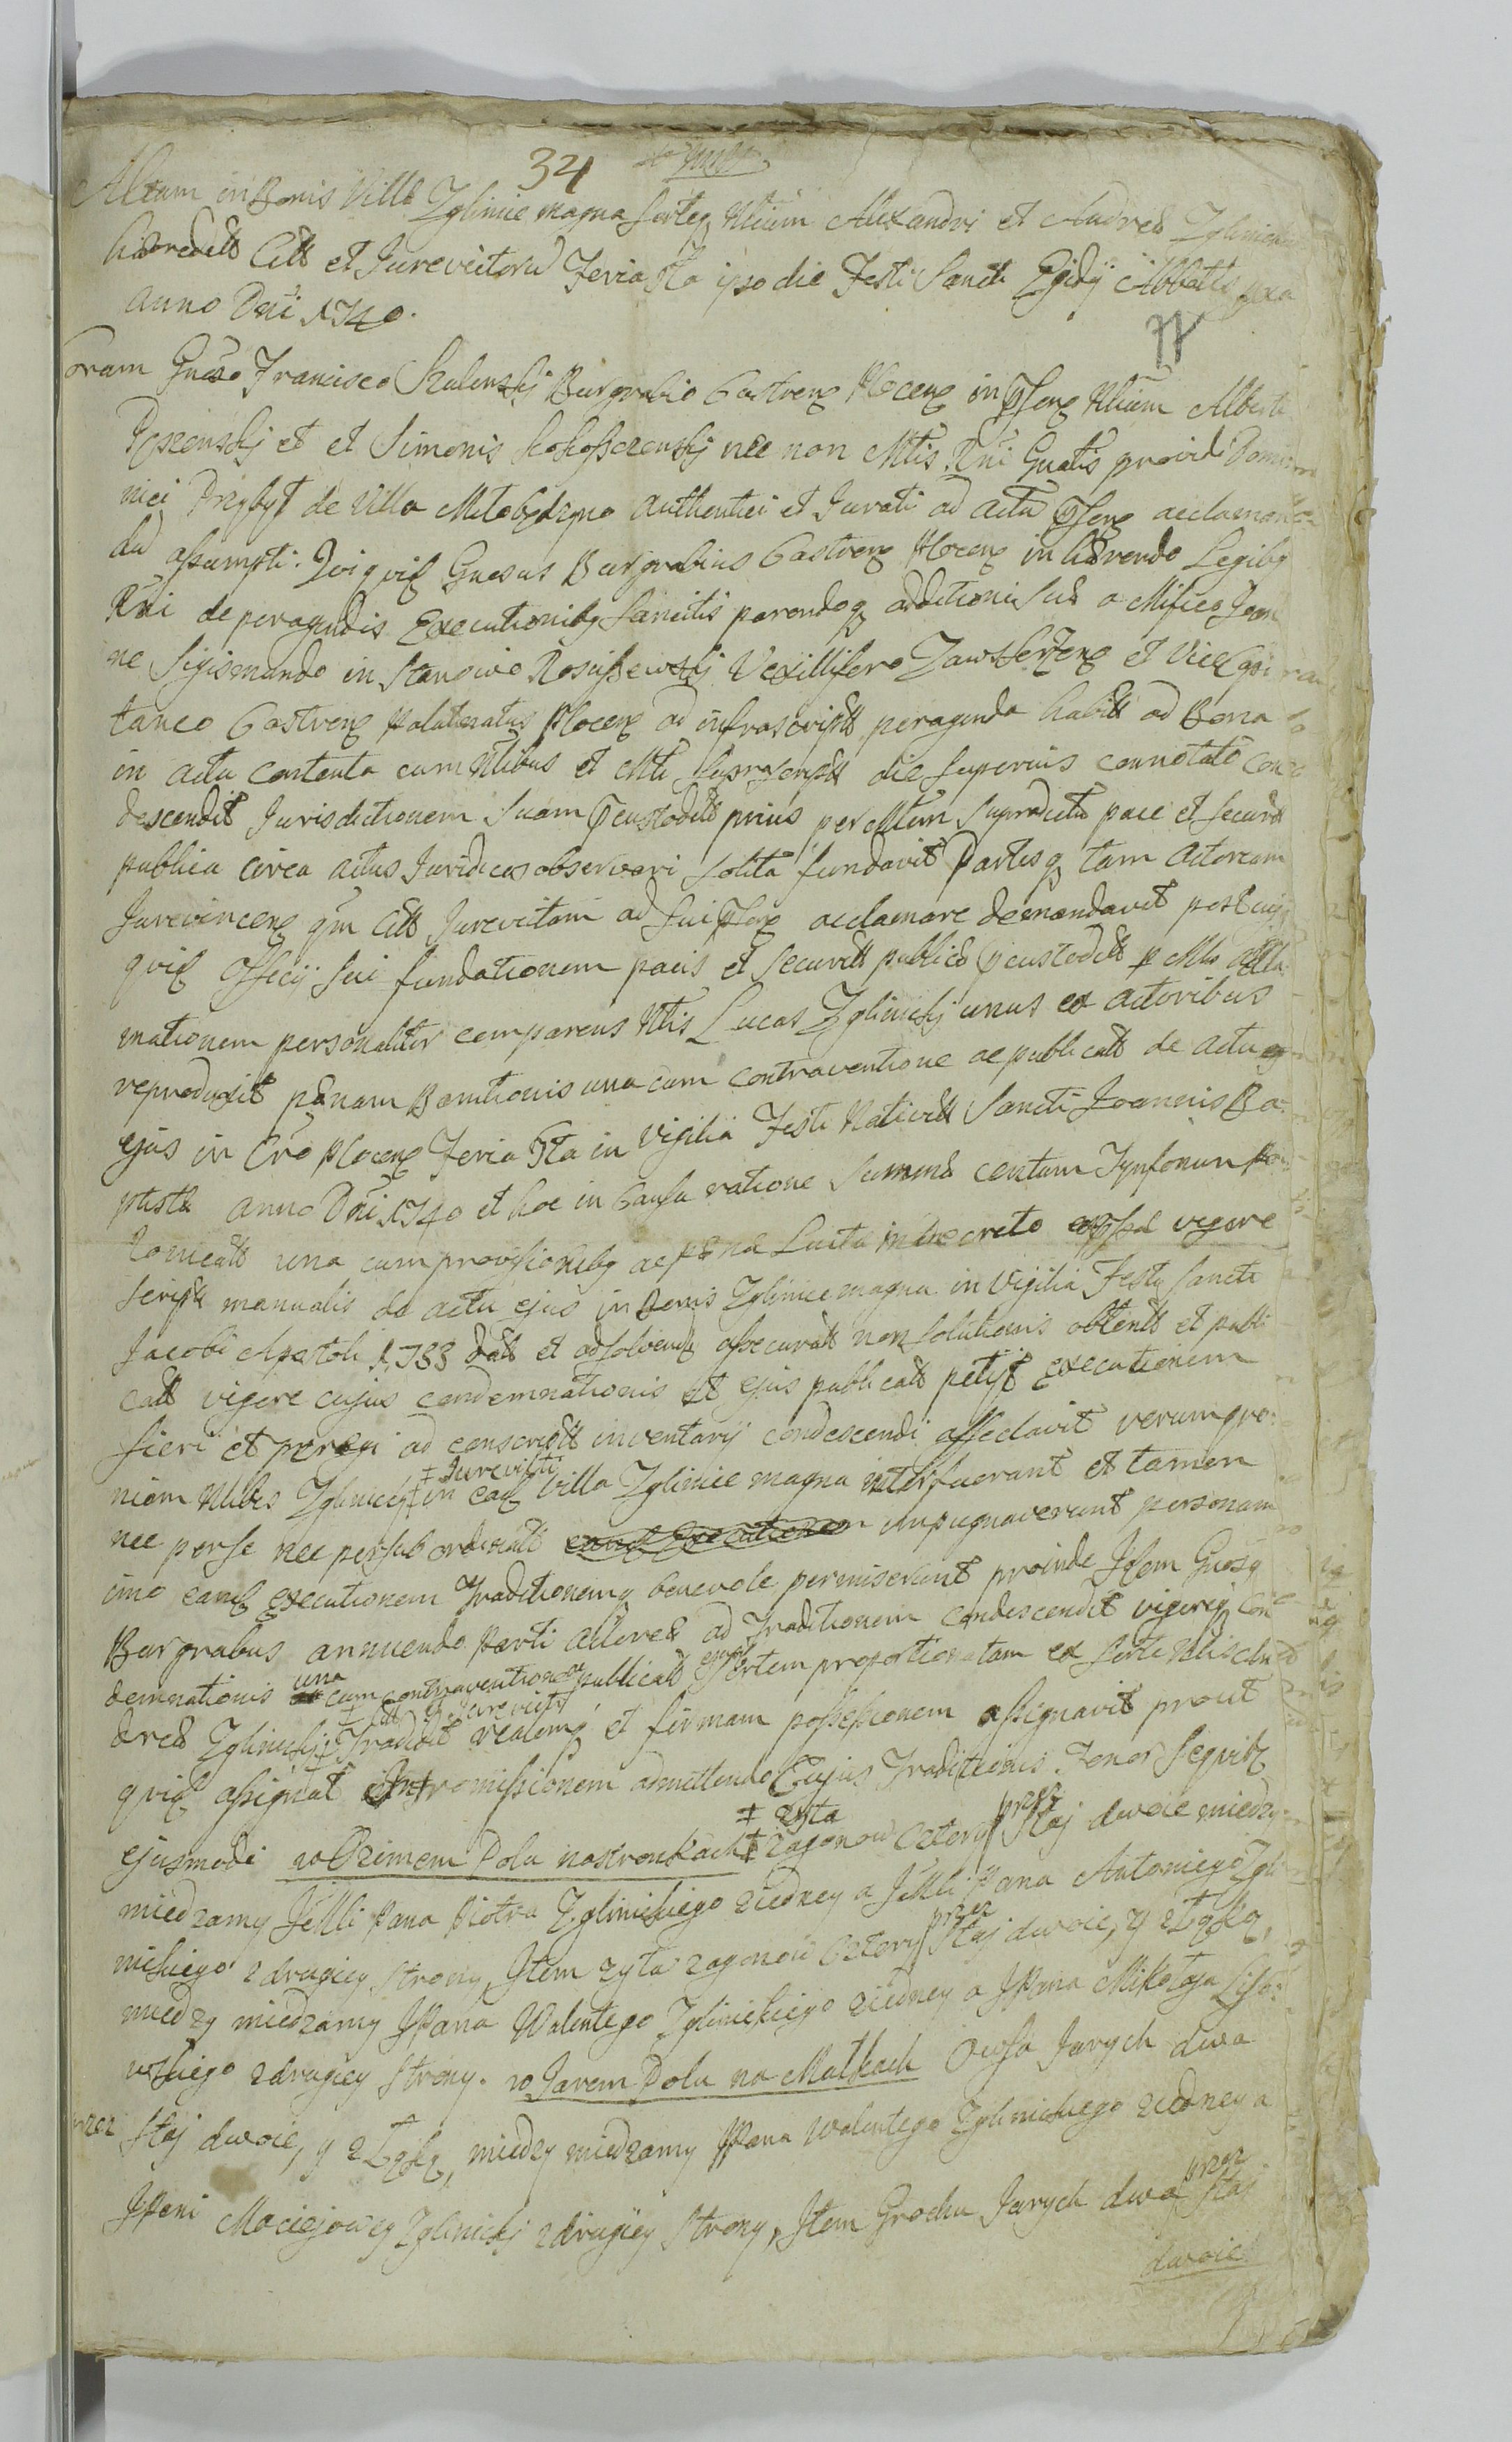 34
Actum in Bonis Villæ Zglinice magna Sorteq Nlium Alexandri et Andreæ
hæredũ Citt et Jurevictorũ Feria 5ta ipso die Festi Sancti Egidij Abbatis
anno Dni 1740.
Coram Gnẽso Francisco Skalenskj Burgrabio Castreñ Ploceñ in Nlium Alberti
et et Simonis nec non Mtis Rni Gnalis providi Domi
nici Przybyt de Villa authentici et Jurati ad actũ acclaman
dũ assumpti. Qui quiq Gnẽsus Burgrabius Castreñ Ploceñ inhærendo Legibq
Rni de peragendis Executionibq Sancitis parendoq additioni Suæ a Mfico Joan
ne Sigismundo in Stanowo Rosciszewskj Vexillifero Zawskrzeñ et Vice
taneo Castreñ Palatinatus Ploceñ ad infrascriptt peragenda habitt ad Bona
in actu contenta cum Nlibus et Mtli suprascriptt die superius connotato con
descendit Jurisdictionem suam prius per Mtlem supradictũ pace et securitt
publica circa actus Juridicos observari solita fundavit Partesq tam actoream
Jurevinceñ qm Citt Jurevictam ad sui acclamare demandavit post cuj
quiq Officij sui fundationem pacis et securitt publicæ p Mtlo accla
mationem personaliter comparens Nlis Lucas Zglinickj unus ex actoribus
reproduxit pænam Bannitionis una cum contraventione ac publicatt de actu
ejus in Cro Ploceñ Feria in Vigilia Festi Nativitt Sancti Joannis Ba
ptistæ anno Dni 1740 et hoc in Causa ratione summæ centum Tynfonum
una cum provisionibq ac pæna Lucta in decreto vigore
scriptt manualis de actu ejus in Bonis Zglinice magna in Vigilia Festi Sancti
Jacobi Apostoli 1733 datt et adsolvendt assecuratt non solutionis obtentt et publi
catt vigore cujus condemnationis et ejus publicatt petijt executionem
fieri et peragi ad conscriptt inventarij condescendi affectavit verum quo
niam Nlibes Zglinickj ‡ Jurevicti in eaq Villa Zglinice magna interfuerunt et tamen
nec per se nec per subordinatt impugnaverunt personam
imo eanq executionem Traditionemq benevole permiserunt proinde Idem Gnẽsq
Burgrabius annuendo Parti actoreæ ad Traditionem condescendit vigoreq Con
demnationis una cum contraventione ac publicatt ejusq sortem proportionatam ex sorte Nlis An
dreæ Zglinickj ‡ Citt et Jurevicti Tradidit realemq et firmam possessionem assignavit prout
quiq assignat Intromissionem admittendo Cujus Traditionis Tenor sequitr
ejusmodi w Ozimem Polu na stronkach ‡ żyta zagonow cztery przez staj dwoie miedzy
miedzamy JMci Pana Piotra Zglinickiego ziedney a JMci Pana Antoniego Zgli
nickiego z drugiey strony, Item zyta zagonow cztery przez staj dwoie, y z Łąką,
miedzy miedzamy JPana Walentego Zglinickiego ziedney a JPana Mikołaja Liso
wskiego z drugiey strony. w Jarem Polu na Matkach Owsa Jarych dwa
przez staj dwoie, y z Łąką, miedzy miedzamy JPana Walentego Zglinickiego ziedney a
JPani Maciejowey Zglinickj z drugiey strony, Item Grochu Jarych dwa przez staj
dwoie